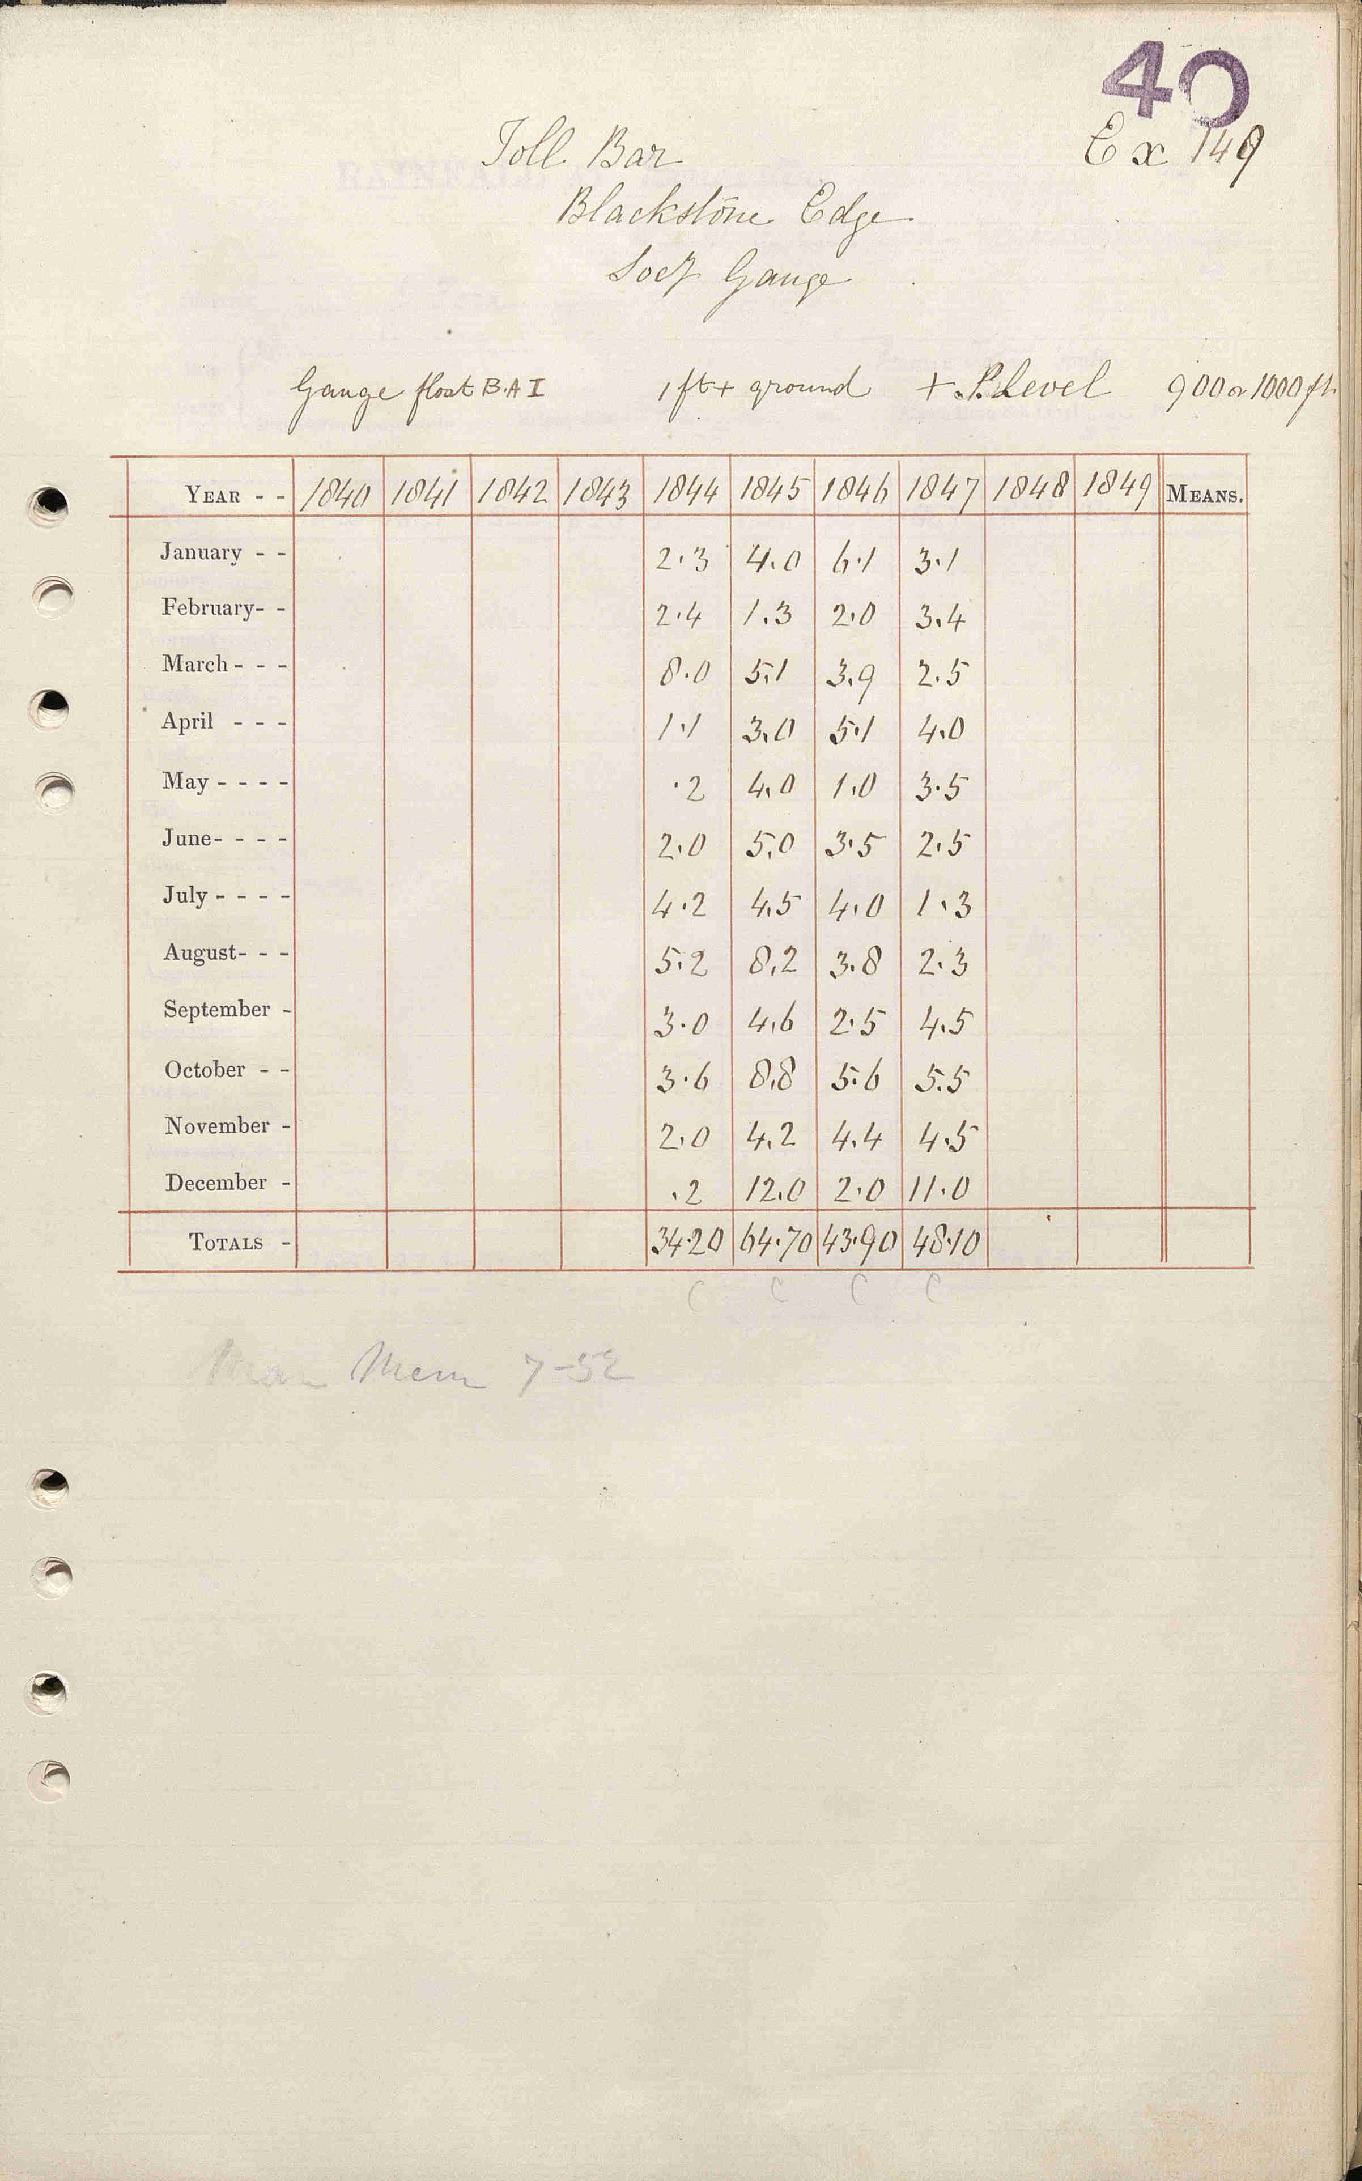 40
Ex 149
Toll Bar
Blackstone Edge
Socy Gauge
Gauge float B.A I 1 ft + ground + S. Level 900 or 1000 ft.
YEAR - - 1840 1841 1842 1843 1844 1845 1846 1847 1848 1849 MEANS.
January - - 2.3 4.0 6.1 3.1
February- - 2.4 1.3 2.0 3.4
March - - - 8.0 5.1 3.9 2.5
April - - - 1.1 3.0 5.1 4.0
May - - - - .2 4.0 1.0 3.5
June- - - - 2.0 5.0 3.5 2.5
July - - - - 4.2 4.5 4.0 1.3
August- - - 5.2 8.2 3.8 2.3
September - 3.0 4.6 2.5 4.5
October - - 3.6 8.8 5.6 5.5
November - 2.0 4.2 4.4 4.5
December - .2 12.0 2.0 11.0
TOTALS - 34.20 64.70 43.90 48.10
C C C C
Man Mem 7-52